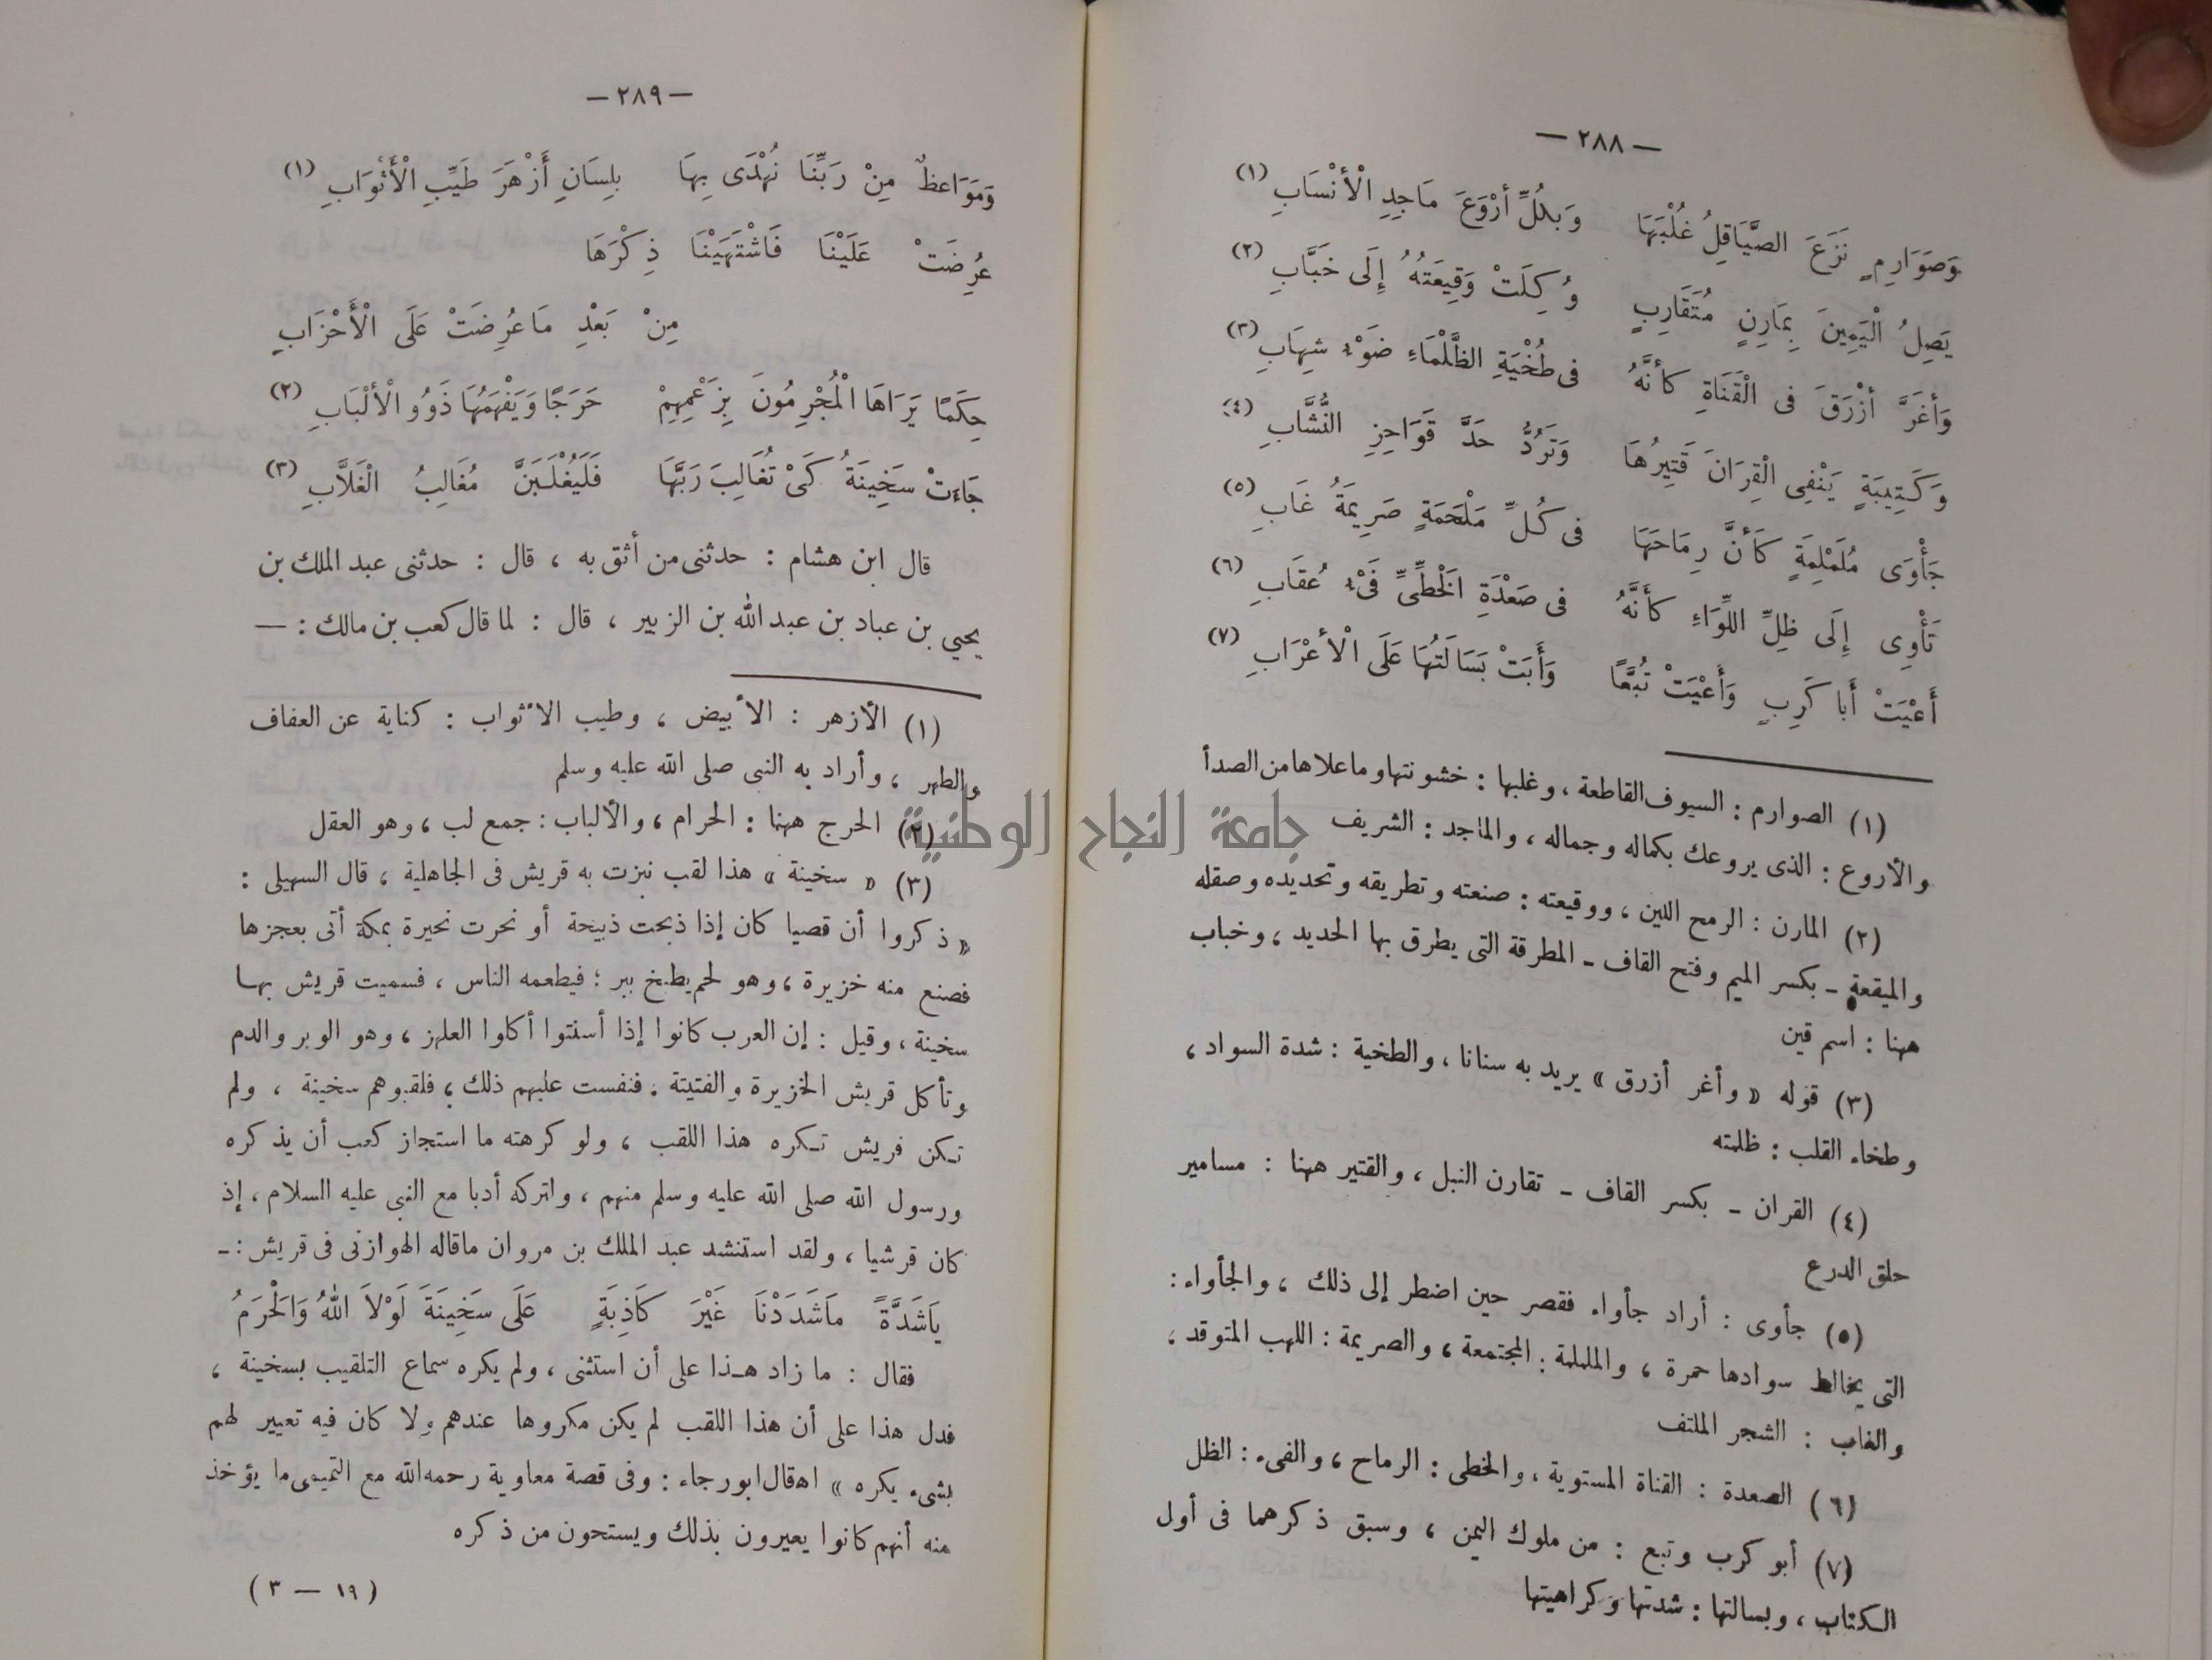 — ٢٨٨ —
وَصَوَارِمٍ نَزَعَ الصَّيَاقِلُ غُلْبَهَا وَبِكُلِّ أَرْوَعَ مَاجِدِ الْأَنْسَابِ (١)
يَصِلُ الْيَمِينَ بِمَارِنٍ مُتَقَارِبٍ وُكِلَتْ وَقِيعَتُهُ إِلَى خَبَّابِ (٢)
وَأَغَرَّ أَزْرَقَ فى الْقَنَاةِ كَأَنَّهُ فى طُخْيَةِ الظَّلْمَاءِ ضَوْءُ شِهَابِ (٣)
وَكَتِيبَةٍ يَنْفِى الْقِرَانَ قَتِيرُهَا وَتَرُدُّ حَدَّ قَوَاحِزِ النُّشَّابِ (٤)
جَأْوَى مُلَمْلِمَةٍ كَأَنَّ رِمَاحَهَا فى كُلِّ مَلْحَمَةٍ صَرِيمَةُ غَابِ (٥)
تَأْوِى إِلَى ظِلِّ اللِّوَاءِ كَأَنَّهُ فى صَعْدَةِ الْخَطِّىِّ فَىْءُ عُقَابِ (٦)
أَعْيَتْ أَبَا كَرِبٍ وَأَعْيَتْ تُبَّعًا وَأَبَتْ بَسَالَتُهَا عَلَى الْأَعْرَابِ (٧)
(١) الصوارم : السيوف القاطعة ، وغلبها : خشونتها وما علاها من الصدأ
والأروع : الذى يروعك بكماله وجماله ، والماجد : الشريف
(٢) المارن : الرمح اللين ، ووقيعته : صنعته وتطريقه وتحديده وصقله
والميقعة – بكسر الميم وفتح القاف – المطرقة التى يطرق بها الحديد ، وخباب
ههنا : اسم قين
(٣) قوله « وأغر أزرق » يريد به سنانا ، والطخية : شدة السواد ،
وطخاء القلب : ظلمته
(٤) القران – بكسر القاف – تقارن النبل ، والقتير ههنا : مسامير
حلق الدرع
(٥) جأوى : أراد جأواء فقصر حين اضطر إلى ذلك ، والجأواء :
التى يخالط سوادها حمرة ، والململمة : المجتمعة ، والصريمة : اللهب المتوقد ،
والغاب : الشجر الملتف
(٦) الصعدة : القناة المستوية ، والخطى : الرماح ، والفىء : الظل
(٧) أبو كرب وتبع : من ملوك اليمن ، وسبق ذكرهما فى أول
الكتاب ، وبسالتها : شدتها وكراهيتها
— ٢٨٩ —
وَمَوَاعِظٌ مِنْ رَبِّنَا نُهْدَى بِهَا بِلِسَانِ أَزْهَرَ طَيِّبِ الْأَثْوَابِ (١)
عُرِضَتْ عَلَيْنَا فَاشْتَهَيْنَا ذِكْرَهَا
مِنْ بَعْدِ مَا عُرِضَتْ عَلَى الْأَحْزَابِ
حِكَمًا يَرَاهَا الْمُجْرِمُونَ بِزَعْمِهِمْ حَرَجًا وَيَفْهَمُهَا ذَوُو الْأَلْبَابِ (٢)
جَاءَتْ سَخِينَةُ كَىْ تُغَالِبَ رَبَّهَا فَلَيُغْلَبَنَّ مُغَالِبُ الْغَلَّابِ (٣)
قال ابن هشام : حدثنى من أثق به ، قال : حدثنى عبد الملك بن
يحيي بن عباد بن عبد الله بن الزبير ، قال : لما قال كعب بن مالك : —
(١) الأزهر : الأبيض ، وطيب الأثواب : كناية عن العفاف
والطهر ، وأراد به النبى صلى الله عليه وسلم
(٢) الحرج ههنا : الحرام ، والألباب : جمع لب ، وهو العقل
(٣) « سخينة » هذا لقب نبزت به قريش فى الجاهلية ، قال السهيلى :
« ذكروا أن قصيا كان إذا ذبحت ذبيحة أو نحرت نحيرة بمكة أتى بعجزها
فصنع منه خزيرة ، وهو لحم يطبخ ببر ؛ فيطعمه الناس ، فسميت قريش بها
سخينة ، وقيل : إن العرب كانوا إذا أسنتوا أكلوا العلهز ، وهو الوبر والدم
وتأكل قريش الخزيرة والفتيتة . فنفست عليهم ذلك ؛ فلقبوهم سخينة ، ولم
تكن قريش تكره هذا اللقب ، ولو كرهته ما استجاز كعب أن يذكره
ورسول الله صلى الله عليه وسلم منهم ، ولتركه أدبا مع النبى عليه السلام ، إذ
كان قرشيا ، ولقد استنشد عبد الملك بن مروان ماقاله الهوازنى فى قريش : –
يَاشَدَّةً مَاشَدَدْنَا غَيْرَ كَاذِبَةٍ عَلَى سَخِينَةَ لَوْلاَ اللهُ وَالْحَرَمُ
فقال : ما زاد هذا على أن استثنى ، ولم يكره سماع التلقيب بسخينة ،
فدل هذا على أن هذا اللقب لم يكن مكروها عندهم ولا كان فيه تعيير لهم
بشىء يكره » اهـ قال ابو رجاء : وفى قصة معاوية رحمه الله مع التميمى ما يؤخذ
منه أنهم كانوا يعيرون بذلك ويستحون من ذكره
( ١٩ — ٣ )
جامعة النجاح الوطنية